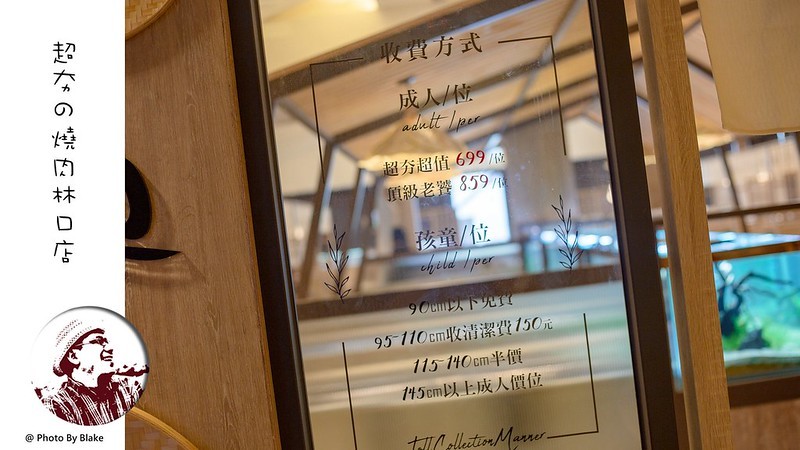 超夯の燒肉林口店
@ Photo By Blake
收費方式
成人/位
adult /per
超夯超值 699/位
頂級老饕 859/位
孩童/位
child /per
90cm以下免費
95-110cm收清潔費150元
115-140cm半價
145cm以上成人價位
Toll Collection Manner